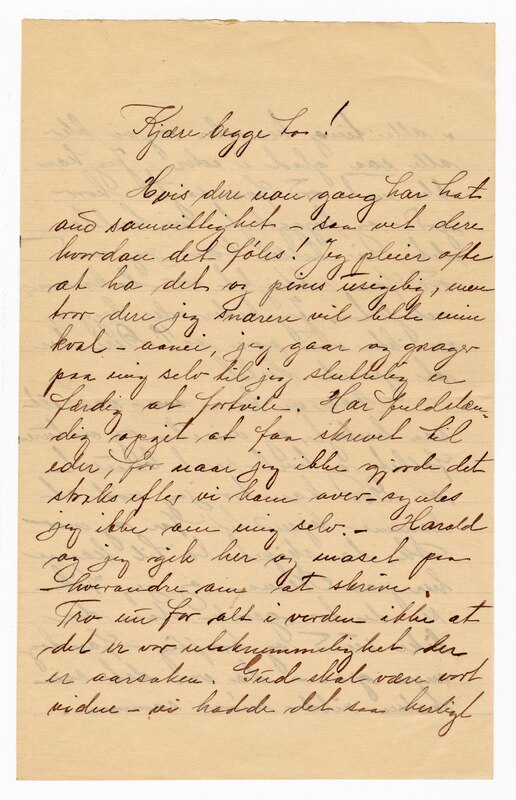 Kjære begge to!
Hvis dere noen gang har hat
ond samvittighet - saa vet dere
hvordan det føles! Jeg pleier ofte
at ha det og pines usigelig, men
tror dere jeg snarere vil lette min
kval - aanei, jeg gaar og gnager
paa mig selv til jeg sluttelig er
færdig at fortvile. Har fuldstæn-
dig opgit at faa skrevet til
eder, for naar jeg ikke gjorde det
straks efter vi kom over - syntes
jeg ikke om mig selv. - Harald
og jeg gik her og maset paa
hverandre om at skrive.
Tro nu for alt i verden ikke at
det er vor utaknemmelighet der
er aarsaken. Gud skal være vort
vidne - vi hadde det saa herligt